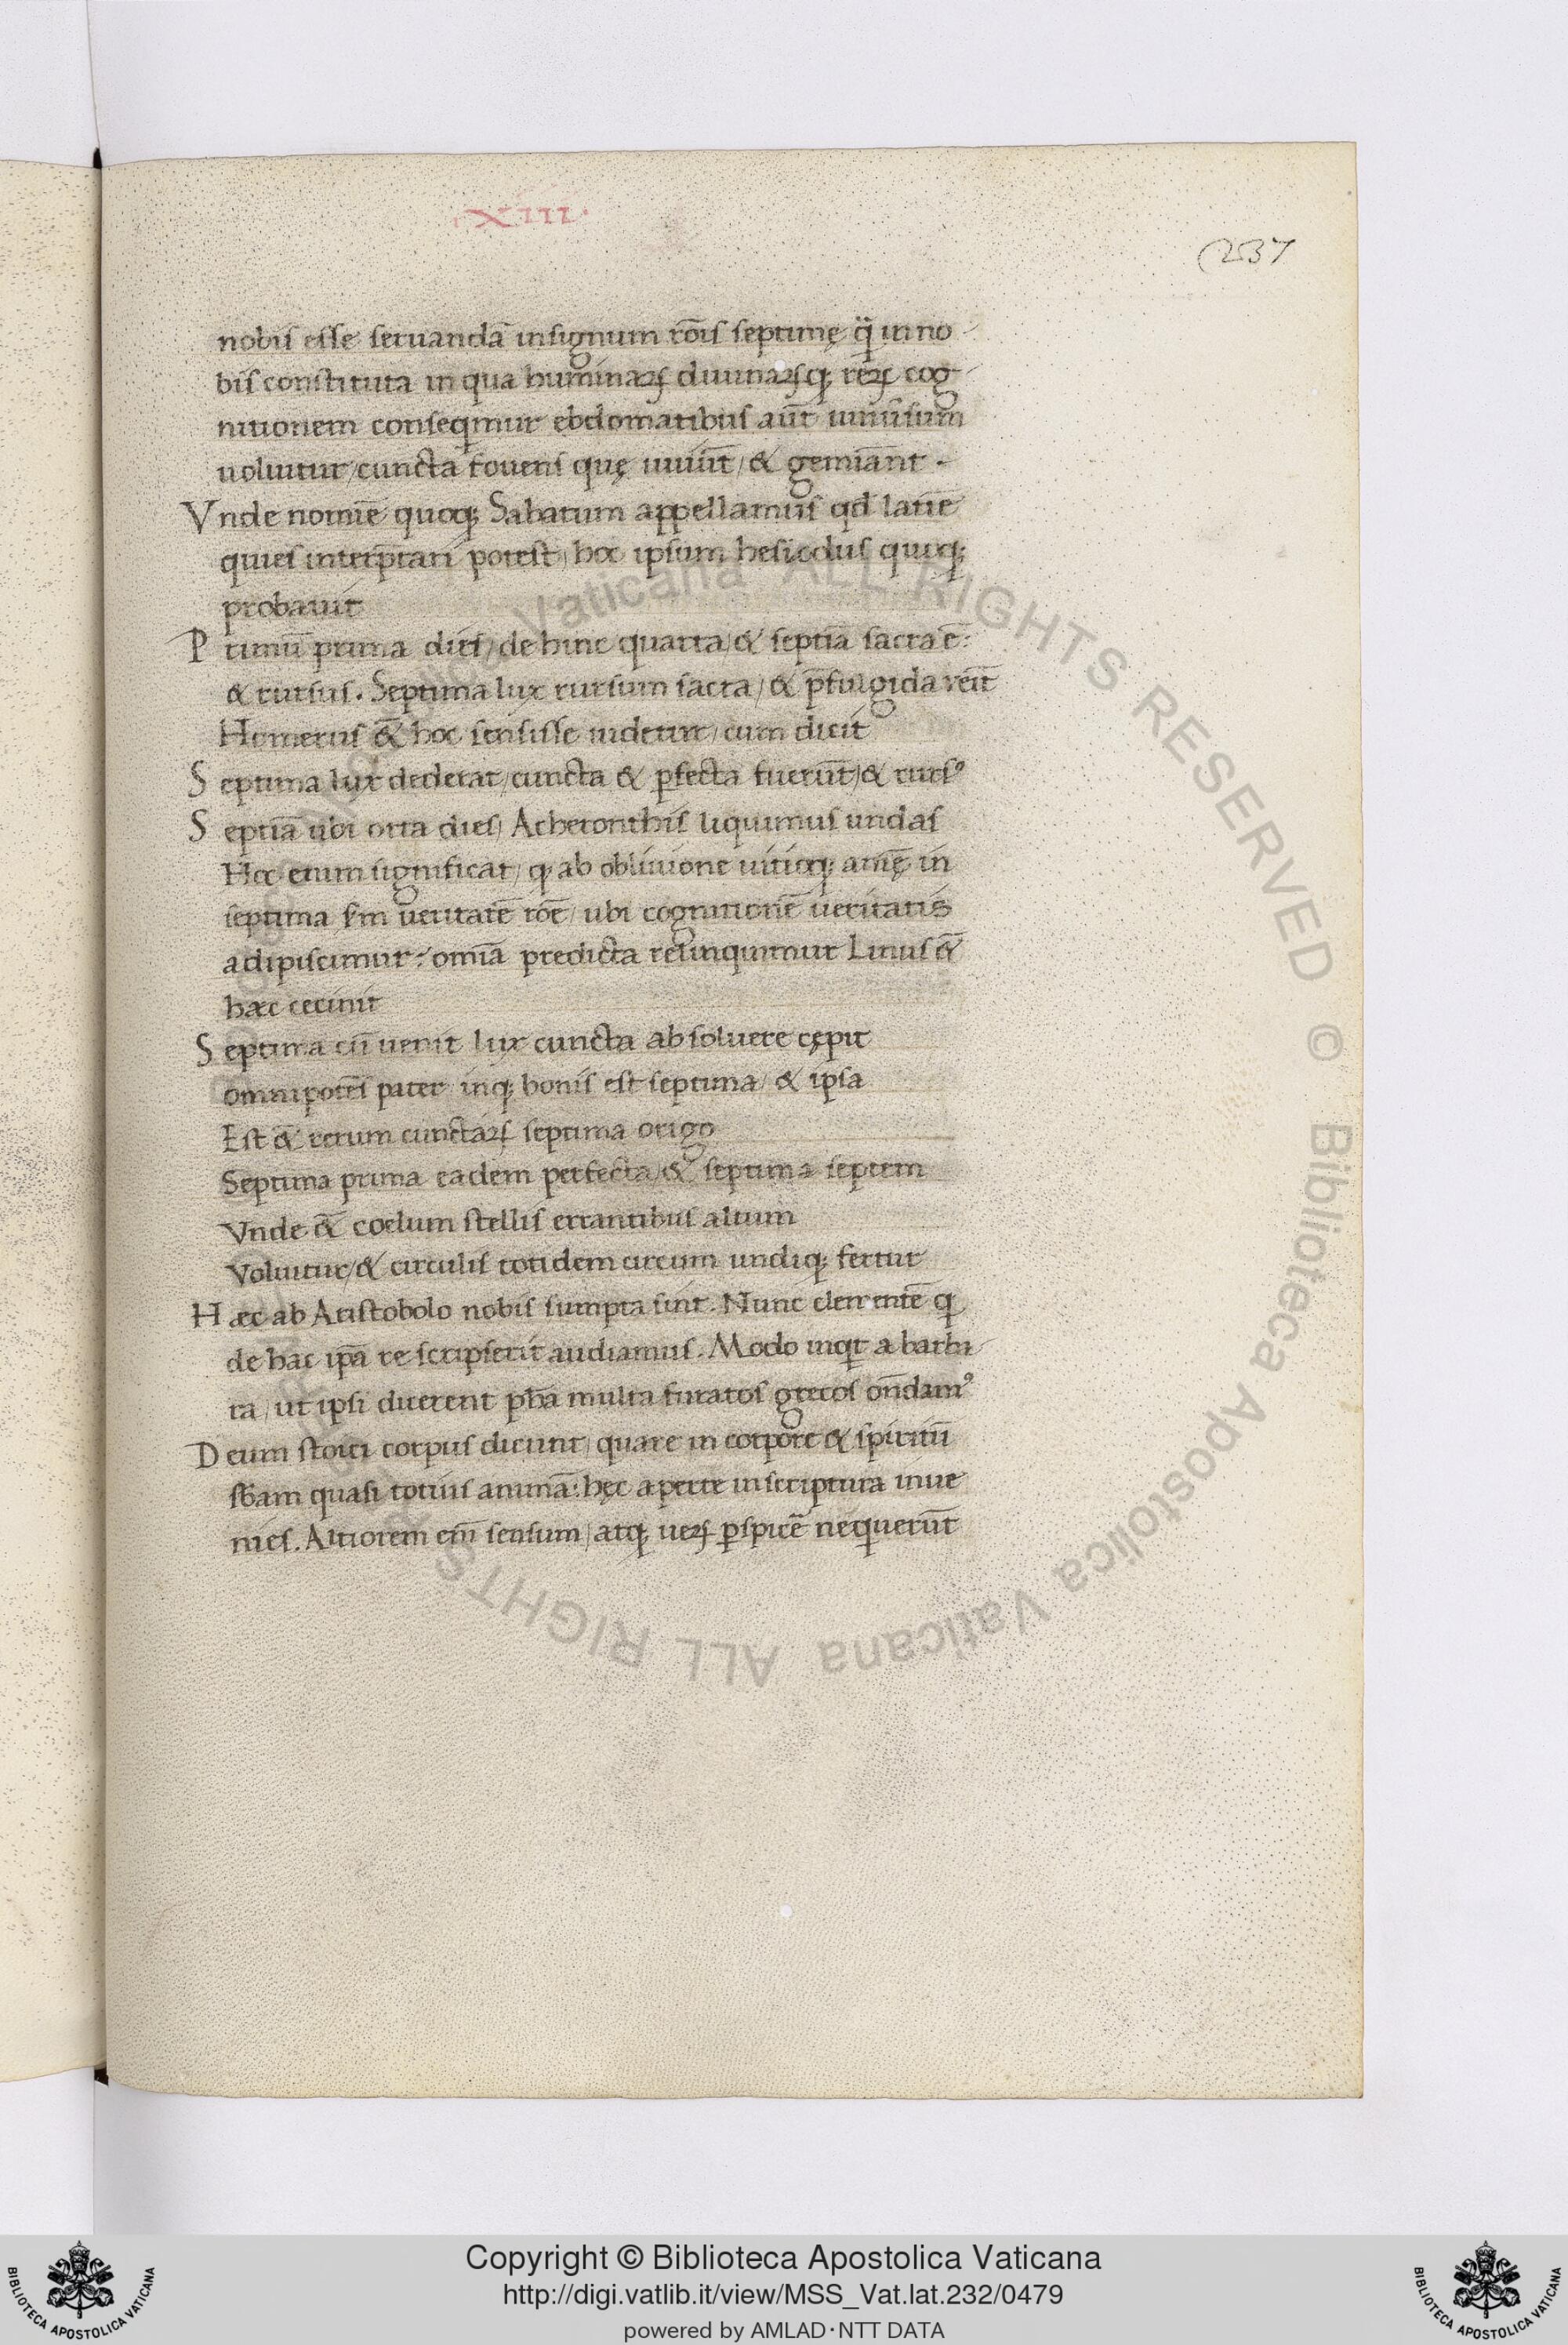 XIII.
237
nobis esse seruandā insignum rōis septimę q̈ in no-
bis constituta in qua huminaꝝ diuinaꝝq; reꝝ cog-
nitionem conseq̇mur ebdomatibus aūt uniusum
uoluitur/cuncta fouens quę uiuūt/& gemiānt.
Vnde nomiē quoq; Sabatum appellamus qd̄ latiē
quies interp̄tari potest/ hoc ipsum hesiodus quoq;
probauit
P rimū prima dies/ de hinc quarta/& septiā sacra ē:
& rursus. Septima lux rursum sacra/& p̄fulgida ueīt
Homerus &̄ hoc sensisse uidetur/cum dicit
S eptima lux dederat/cuncta & ꝑfecta fuerūt/& rursꝰ
S eptiā ubi orta dies/ Acheronthis liquimus undas
Hoc enim significat/ q; ab obliuione uitioq; animę in
septima s̄m ueritatē rōē/ ubi cognitionē ueritatis
adipiscimur:/omiā predicta relinquimur Linus &̄
hæc cecinit
S eptima cū uenit lux cuncta absoluere cępit
omnipotēs pater inq; bonis est septima/ & ipsa
Est &̄ rerum cunctaꝝ septima origo
Septima prima eadem perfecta/& septima septem
Vnde &̄ coelum stellis errantibus altum
Voluitur/& circulis totidem circum undiq; fertur
H æc ab Aristobolo nobis sumpta sint. Nunc clementē q̇
de hac ip̄a re scripserit audiamus. Modo inq̇t a barba-
ra/ ut ipsi dicerent ph̄ia multa furatos grecos on̄damꝰ
D eum stoici corpus dicunt/ quare in corpore & spiritū
sb̄am quasi totius animā: hęc aperte in scriptura inue
nies. Altiorem eīm sensum/atq; ueꝝ ꝑspicē nequerūt
Copyright © Biblioteca Apostolica Vaticana
http://digi.vatlib.it/view/MSS_Vat.lat.232/0479
powered by AMLAD·NTT DATA